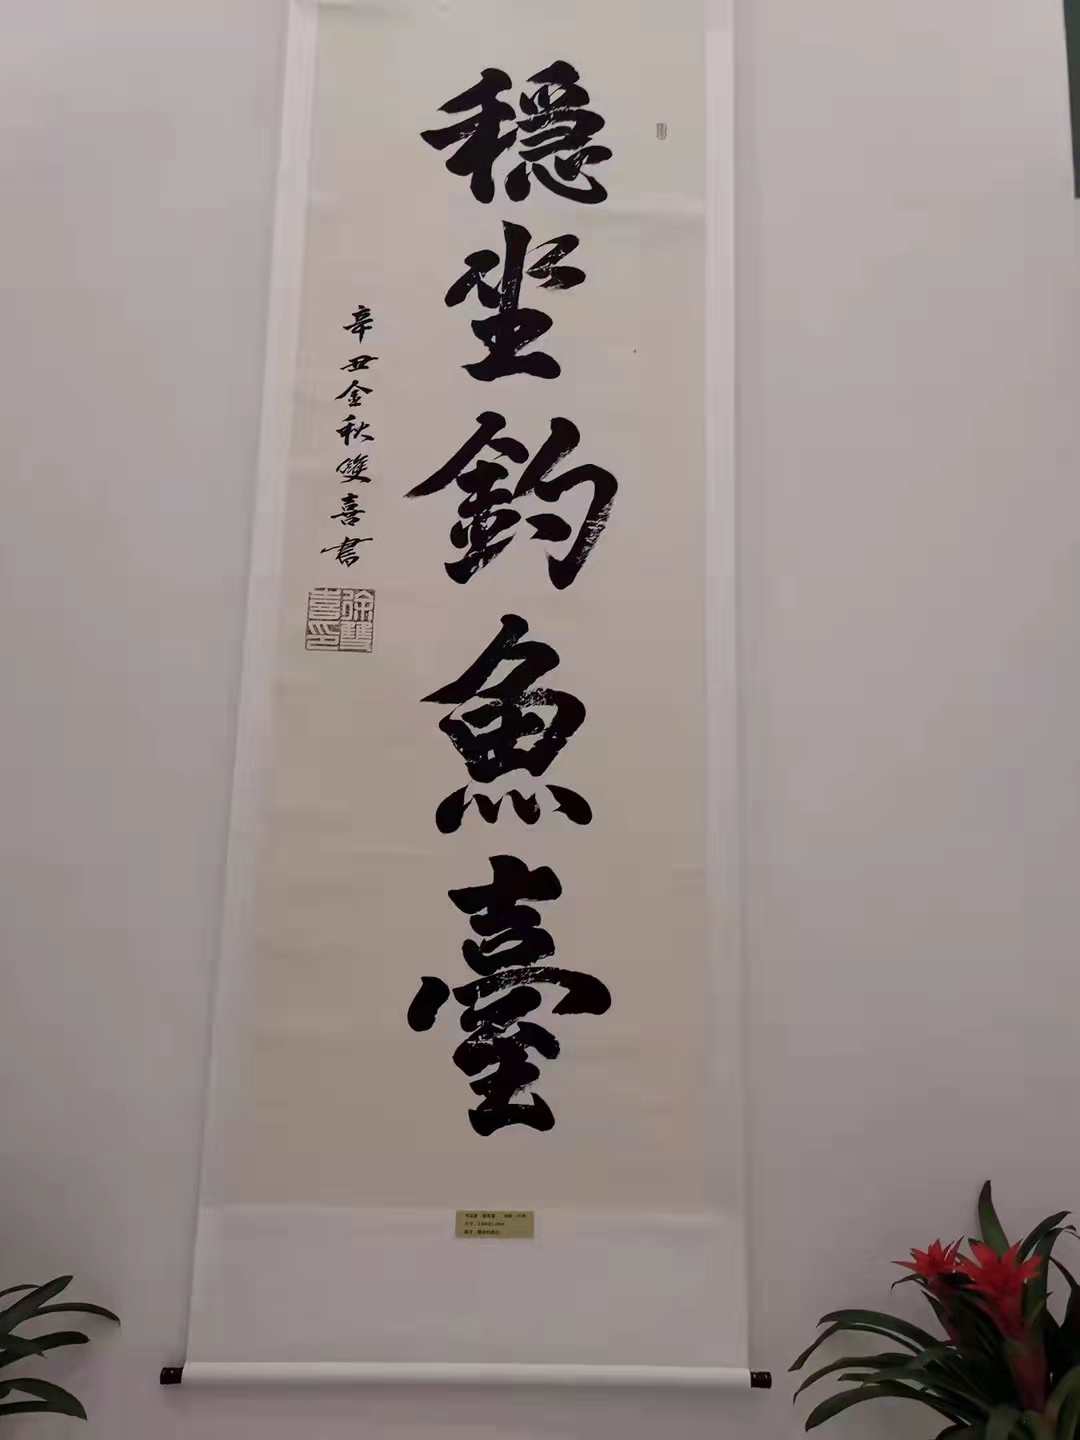 穩坐釣魚臺
辛丑金秋雙喜書
徐雙喜印